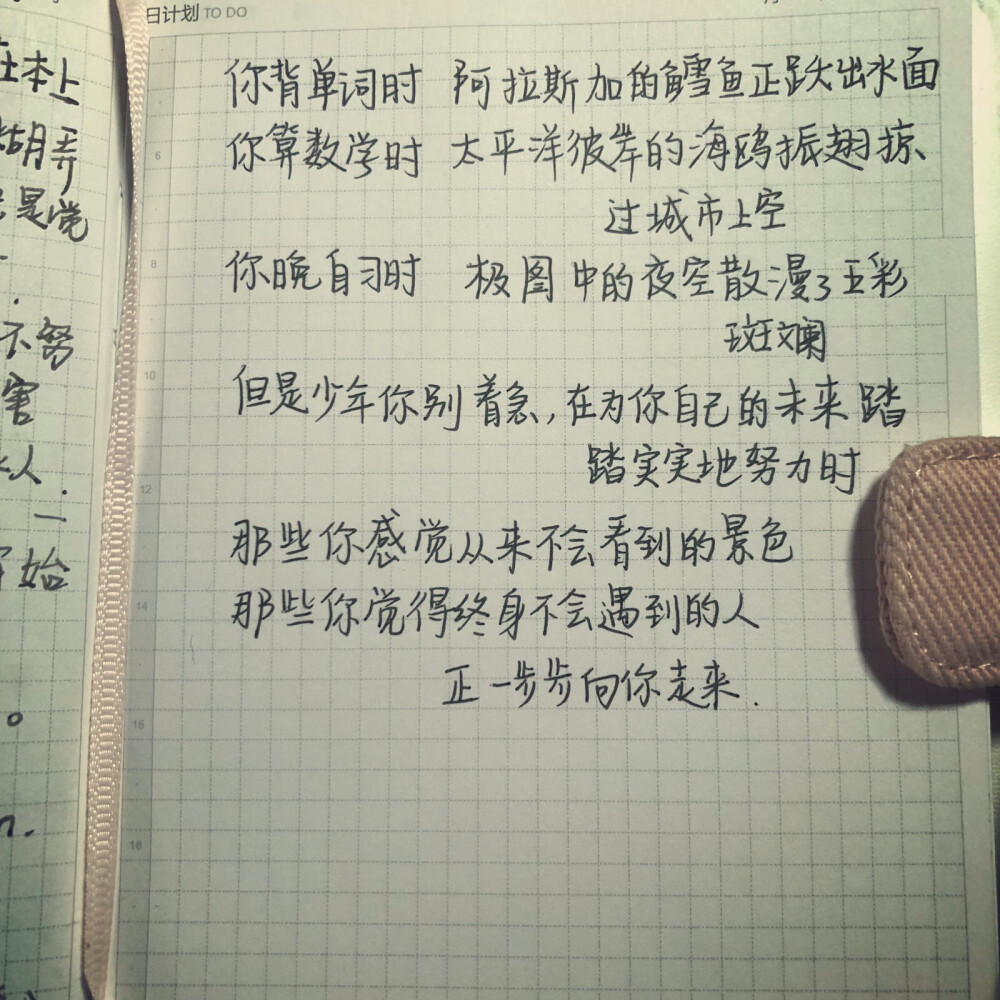 日计划 TO DO
你背单词时 阿拉斯加的鳕鱼正跃出水面
你算数学时 太平洋彼岸的海鸥振翅掠
过城市上空
你晚自习时 极图中的夜空散漫了五彩
斑斓
但是少年你别着急,在为你自己的未来踏
踏实实地努力时
那些你感觉从来不会看到的景色
那些你觉得终身不会遇到的人
正一步步向你走来.
6
8
10
12
14
16
18
在本上
糊弄
是觉
不努
害
人.
一
开始
n.